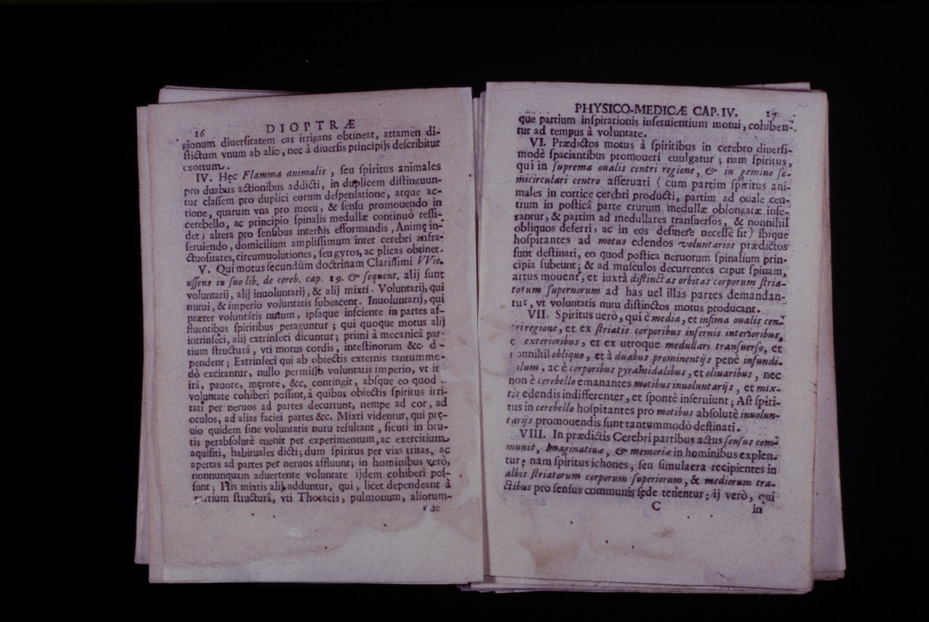 16 DIOPTRÆ
gionum diuersitatem eas irrigans obtineat, attamen di-
stictum vnum ab alio, nec à diuersis principijs describitur
exortum.
IV. Hęc Flamma animalis, seu spiritus animales
pro duabus actionibus addicti, in duplicem distinguun-
tur classem pro duplici eorum despensatione, atque ac-
tione, quarum vna pro motu, & sensu promouendo in
cerebello, ac principio spinalis medullæ continuò resi-
det; altera pro sensibus internis efformandis, Animę in-
seruiendo, domicilium amplissimum inter cerebri anfra-
ctuositates, circumuolutiones, seu gyros, ac plicas obtinet.
V. Qui motus secundùm doctrinam Clarissimi VVil-
in suo lib. de cereb. cap. 19. & sequent. alij sunt
voluntarij, alij inuoluntarij, & alij mixti. Voluntarij, qui
nutui, & imperio voluntatis subeacent. Inuoluntarij, qui
præter voluntatis nutum, ipsaque insciente in partes af-
fluentibus spiritibus peraguntur; qui quoque motus alij
intrinseci, alij extrinseci dicuntur; primi à mecanicâ par-
tium structurâ, vti motus cordis, intestinorum &c. d-
pendent; Extrinseci qui ab obiectis externis tantumme-
dò excitantur, nullo permisso voluntatis imperio, vt ir
irâ, pauore, męrore, &c, contingit, absque eo quod
voluntate cohiberi possint, à quibus obiectis spiritus irri-
tati per neruos ad partes decurrunt, nempe ad cor, ad
oculos, ad alias faciei partes &c. Mixti videntur, qui prę-
uio quidem sine voluntatis nutu resultant, sicuti in bru-
tis perabsolutè euenit per experimentum, ac exercitium
aquisiti, habituales dicti; dum spiritus per vias tritas, ac
apertas ad partes per neruos affluunt; in hominibus verò,
nonnunquam aduertente voluntate ijdem cohiberi pos-
sunt; His mixtis alij adduntur, qui, licet dependeant à
structurâ, vti Thoracis, pulmonum, aliorum-
que
PHYSICO-MEDICÆ CAP. IV. 17
que partium inspirationis inseruientium motui, cohiben-
tur ad tempus à voluntate.
VI. Prædictos motus à spiritibus in cerebro diuersi-
modè spaciantibus promoueri euulgatur; nam spiritus,
qui in suprema oualis centri regione, & in gemino se-
micirculari centro asseruati (cum partim spiritus ani-
males in cortice cerebri producti, partim ad ouale cen-
trium in posticâ parte crurum medullæ oblongatæ inse-
rantur, & partim ad medullares transuersos, & nonnihil
obliquos deferri, ac in eos desinere necesse sit) ibique
hospitantes ad motus edendos voluntarios prædictos
sunt destinati, eo quod postica neruorum spinalium prin-
cipia subeunt; & ad musculos decurrentes caput spinam,
artus mouent, et iuxtà distinctas orbitas corporum stria-
torum supernorum ad has uel illas partes demandan-
tur, vt voluntatis nutu distinctos motus producant.
VII. Spiritus uerò, qui è media, et infima oualis cen-
tri regione, et ex striatis corporibus infernis interioribus,
exterioribus, et ex utroque medullari transuerso, et
nonnihil obliquo, et à duabus prominentijs penè infundi-
ulum, ac è corporibus pyramidalibus, et oliuaribus, nec
non è cerebello emanantes motibus inuoluntarijs, et mix-
tis edendis indifferenter, et spontè inseruiunt; Ast spiri-
tus in cerebello hospitantes pro motibus absolutè inuolun-
tarijs promouendis sunt tantummodò destinati.
VIII. In prædictis Cerebri partibus actus sensus com-
munis, Imaginatiuæ, & memoriæ in hominibus explen-
tur; nam spiritus ichones, seu simulacra recipientes in
albis striatorum corporum superiorum, & mediorum tra-
ctibus pro sensus communis sede tenentur; ij verò, qui
C in